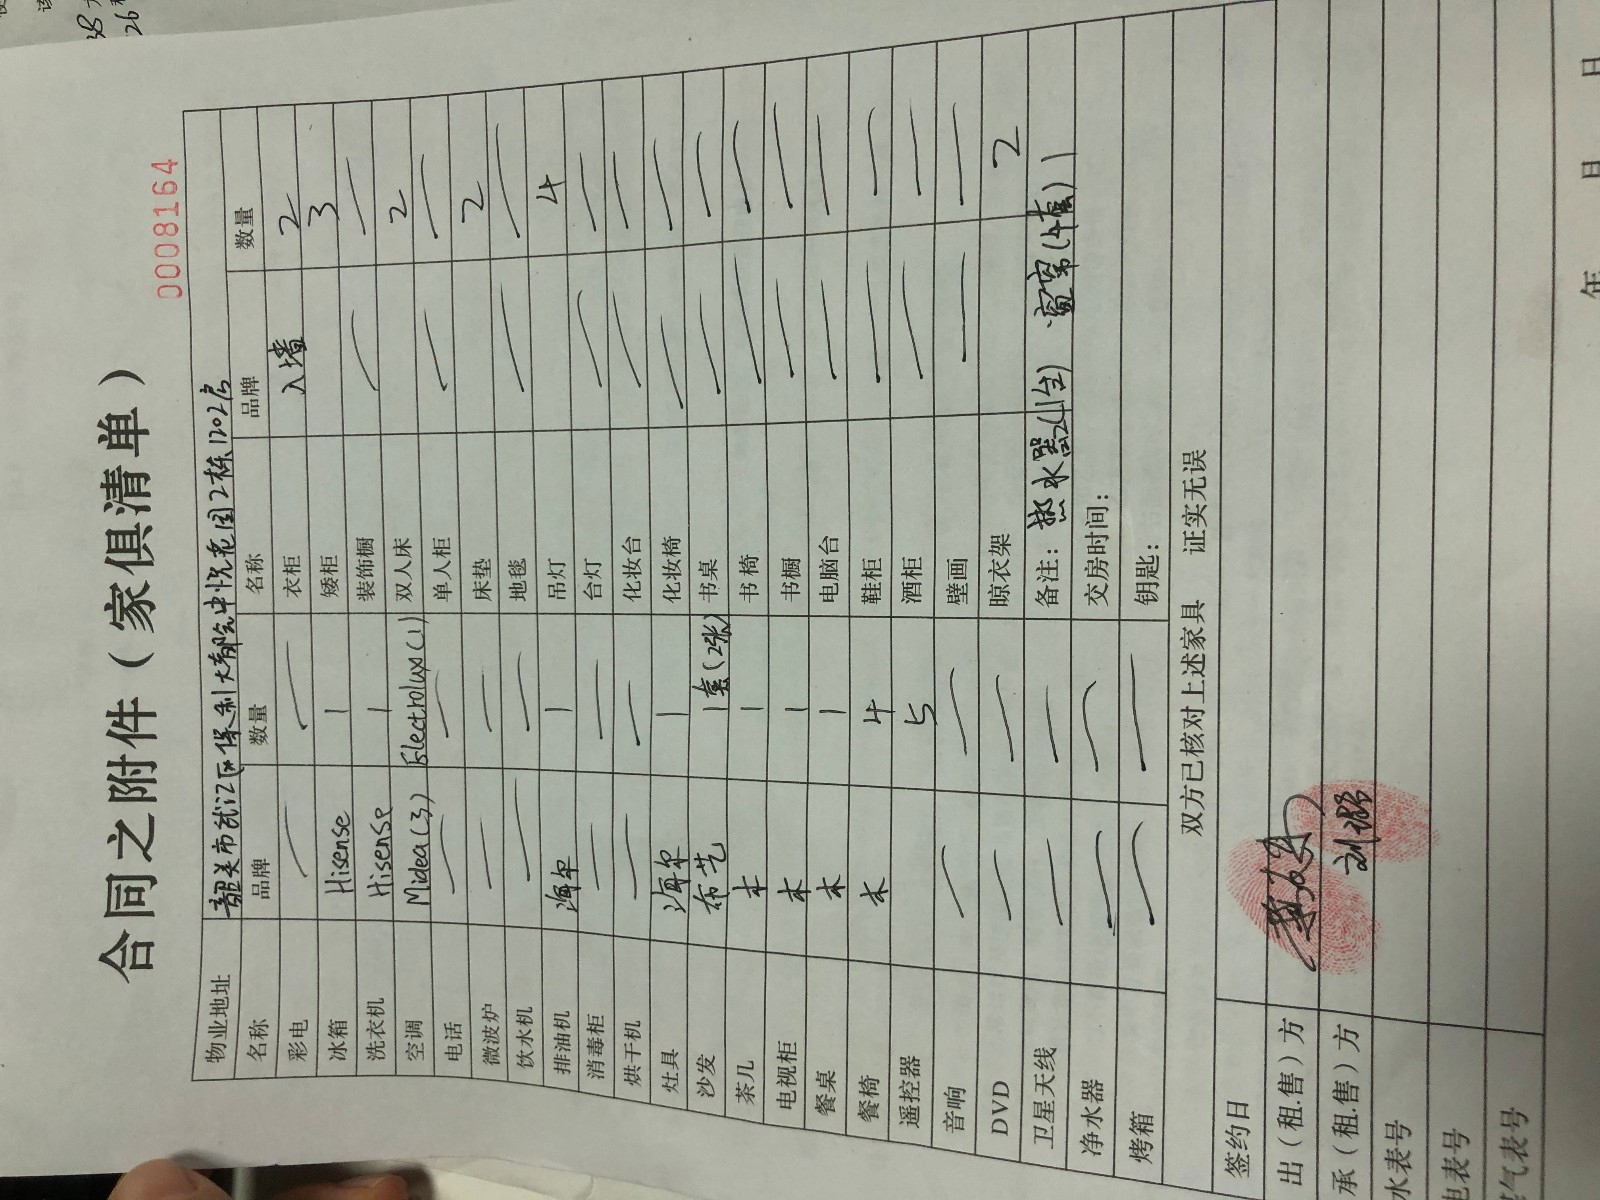 合同之附件（家俱清单）
0008164
物业地址 韶关市武江区保利大都会中悦花园2栋1202房
名称 品牌 数量 名称 品牌 数量
彩电 衣柜 入墙 2
冰箱 Hisense 1 矮柜 3
洗衣机 Hisense 1 装饰橱
空调 Midea(3) Electrolux(1) 双人床 2
电话 单人柜
微波炉 床垫 2
饮水机 地毯
排油机 海尔 1 吊灯 4
消毒柜 台灯
烘干机 化妆台
灶具 海尔 1 化妆椅
沙发 布艺 1套(2张) 书桌
茶几 木 1 书椅
电视柜 木 1 书橱
餐桌 木 1 电脑台
餐椅 木 4 鞋柜
遥控器 5 酒柜
音响 壁画
DVD 晾衣架 2
卫星天线 备注：热水器(1台) 窗帘(4套)
净水器 交房时间：
烤箱 钥匙：
双方已核对上述家具 证实无误
签约日
出（租.售）方
承（租.售）方 刘璐
水表号
电表号
气表号
年 月 日